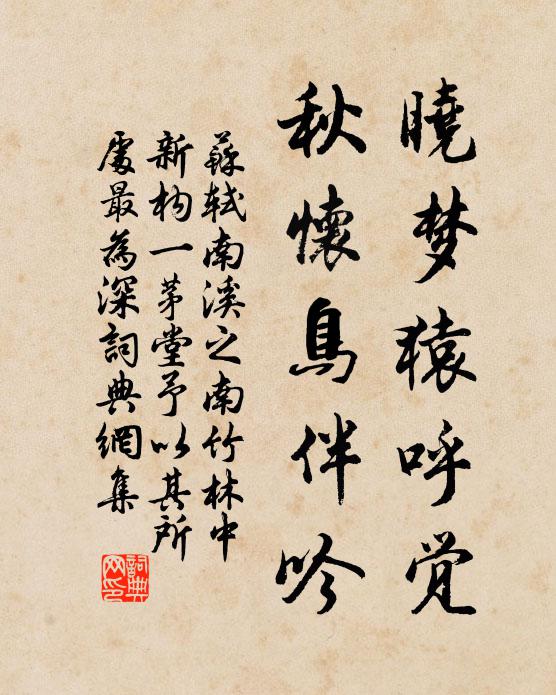 曉梦猿呼觉
秋懷鳥伴吟
蘇軾南溪之南竹林中
新构一茅堂予以其所
處最為深詞典網集
詞典网印